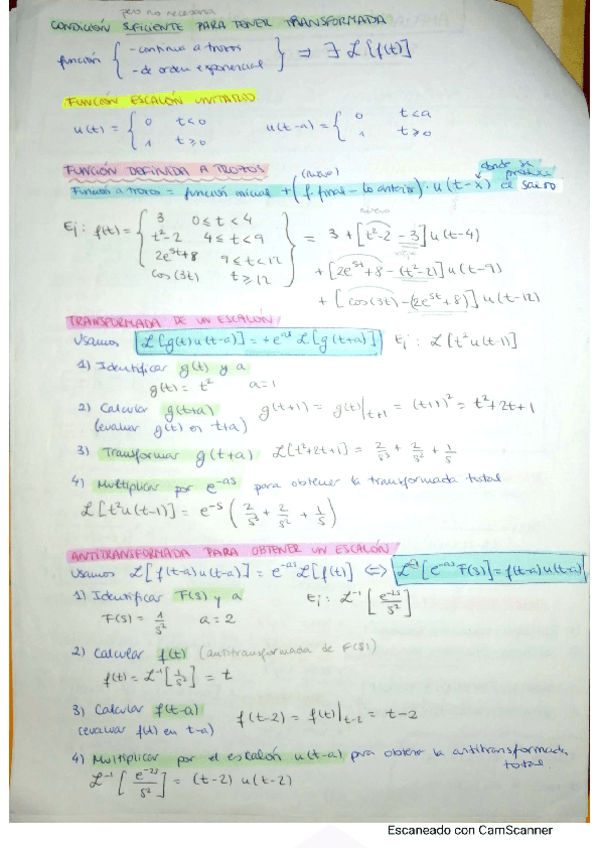 pero no necesaria
CONDICIÓN SUFICIENTE PARA TENER TRANSFORMADA
función { - continua a trozos - de orden exponencial } ⇒ ∃ ℒ[f(t)]
FUNCIÓN ESCALÓN UNITARIO
u(t) = { 0 t<0 1 t≥0 u(t-a) = { 0 t<a 1 t≥0
FUNCIÓN DEFINIDA A TROZOS
donde se produce el salto
(nuevo)
Función a trozos = función inicial + (f. final - lo anterior) · u(t-x)
Ej: f(t) = { 3 0≤t<4
t²-2 4≤t<9
2e^5t+8 9≤t<12
cos(3t) t≥12 }
= 3 + [t²-2-3] u(t-4)
+ [2e^5t+8-(t²-2)] u(t-9)
+ [cos(3t)-(2e^5t+8)] u(t-12)
TRANSFORMADA DE UN ESCALÓN
Usamos ℒ[g(t)u(t-a)] = +e^-as ℒ[g(t+a)] Ej: ℒ[t²u(t-1)]
1) Identificar g(t) y a
g(t) = t² a=1
2) Calcular g(t+a) g(t+1) = g(t)|t+1 = (t+1)² = t²+2t+1
(evaluar g(t) en t+a)
3) Transformar g(t+a) ℒ[t²+2t+1] = 2/s³ + 2/s² + 1/s
4) Multiplicar por e^-as para obtener la transformada total
ℒ[t²u(t-1)] = e^-s (2/s³ + 2/s² + 1/s)
ANTITRANSFORMADA PARA OBTENER UN ESCALÓN
Usamos ℒ[f(t-a)u(t-a)] = e^-as ℒ[f(t)] ⇔ ℒ^-1[e^-as F(s)] = f(t-a)u(t-a)
1) Identificar F(s) y a Ej: ℒ^-1[e^-2s/s²]
F(s) = 1/s² a=2
2) Calcular f(t) (antitransformada de F(s))
f(t) = ℒ^-1[1/s²] = t
3) Calcular f(t-a) f(t-2) = f(t)|t-2 = t-2
(evaluar f(t) en t-a)
4) Multiplicar por el escalón u(t-a) para obtener la antitransformada
total
ℒ^-1[e^-2s/s²] = (t-2) u(t-2)
Escaneado con CamScanner